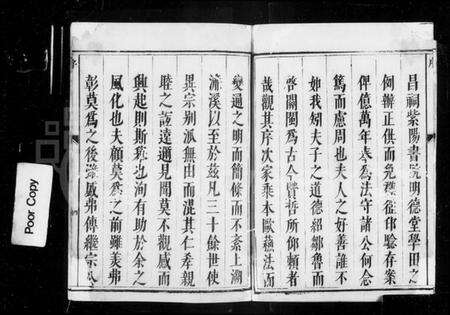 昌祠紫陽書院明德堂學田之
例辦正供而免襍徭印驗存案
俾億萬年奉為法守諸公何念
篤而慮周也夫人之好善誰不
如我矧夫子之道德紹鄒魯而
啓關閩為古今賢哲所仰賴者
哉觀其序次家乘本歐蘇法而
變通之明而簡修而不紊上溯
濂溪以至於茲凡三十餘世使
異宗别派無由而混其仁孝親
睦之誼遠邇見聞莫不觀感而
興起則斯譜也洵有助於余之
風化也夫顧莫為之前雖美弗
彰莫為之後雖盛弗傳繼宗
序
Poor Copy